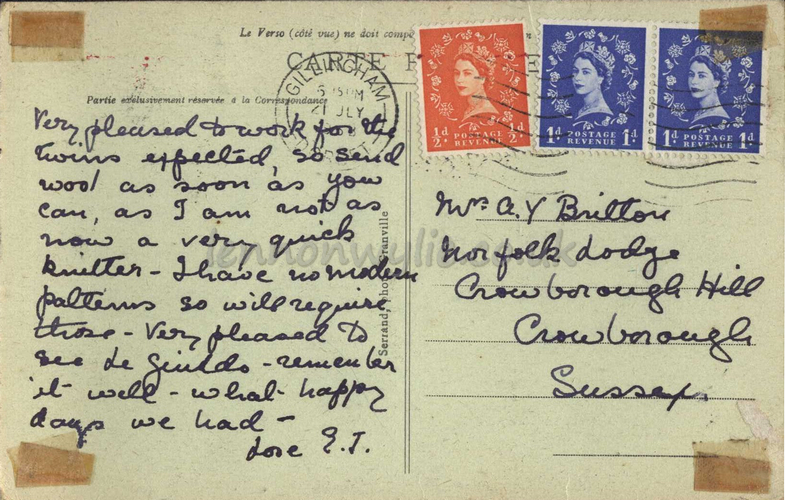 Le Verso (côté vue) ne doit comp
CARTE P
E
Partie exclusivement réservée à la Correspondance
GILLINGHAM
5 15 PM
2 JLY
½d ½d
POSTAGE
REVENUE
1d 1d
POSTAGE
REVENUE
1d 1d
POSTAGE
REVENUE
Very pleased to work for the
twins expected, so send
wool as soon as you
can, as I am not as
now a very quick
knitter - I have no modern
patterns so will require
those - Very pleased to
see de - remember
it well - what happy
days we had -
Love E.J.
Serrand, Phot. Granville
Mrs A.Y Britton
Norfolk Lodge
Crowborough Hill
Crowborough
Sussex.
lennonwylie.co.uk